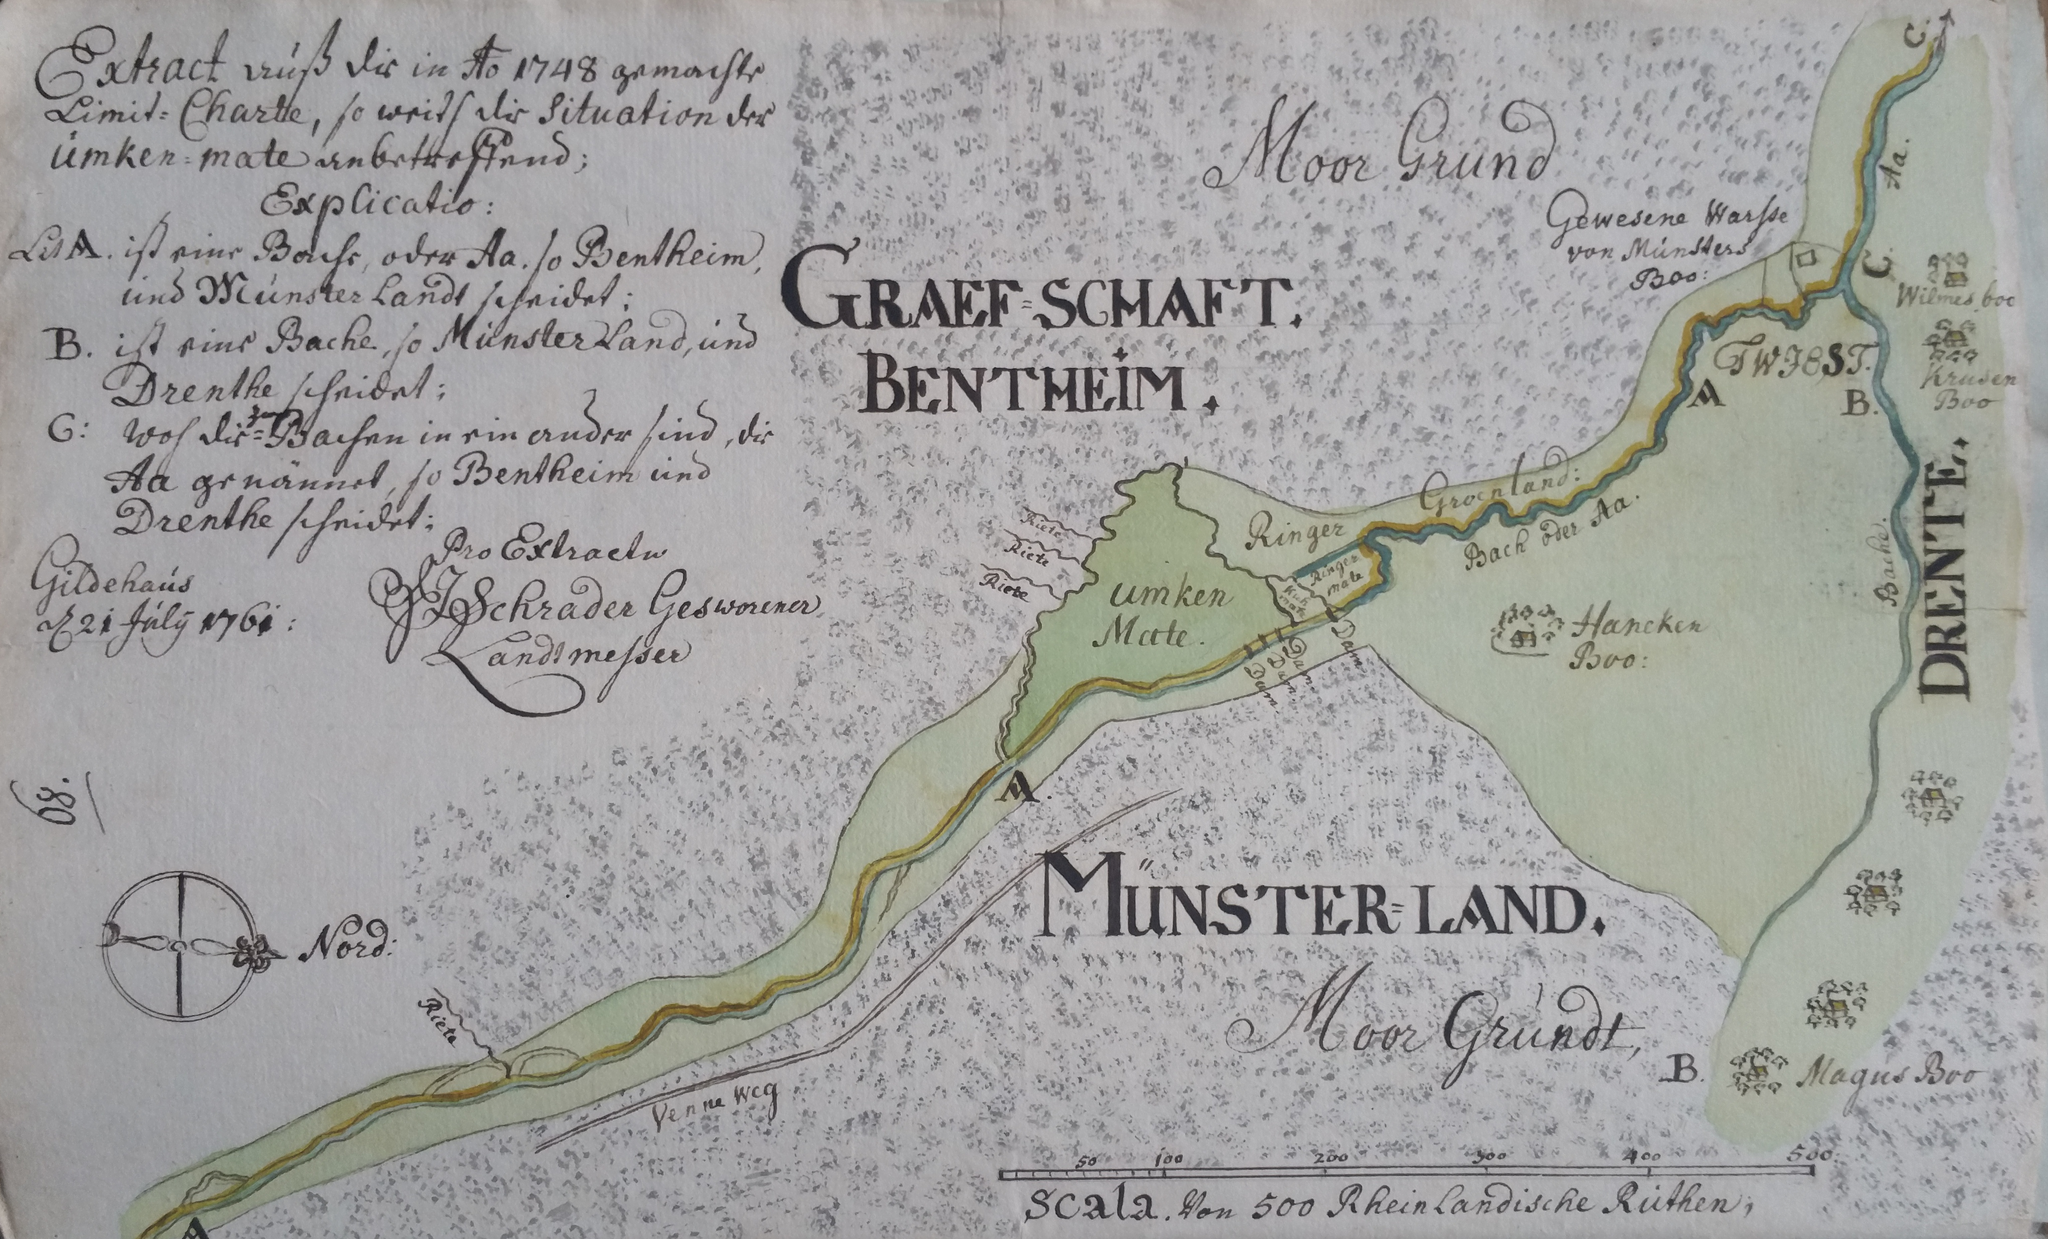 Extract auß die in Ao 1748 gemachte
Limit=Charte, so weith die Situation der
ümken=mate anbetreffend;
Explicatio:
Lit A. ist eine Bache, oder Aa. so Bentheim,
und Münster Landt scheidet;
B. ist eine Bache, so Münster Land, und
Drenthe scheidet;
C: woh die Bachen in ein ander sind, die
Aa genännet, so Bentheim und
Drenthe scheidet;
Pro Extractu
Schrader Gesworener
Landtmesser
Gildehaus
21 July 1761:
68.
Nord:
Moor Grund
GRAEF=SCHAFT.
BENTHEIM.
Gewesene Warsse
von Münsters
Boo:
C.
Aa.
C.
Wilmes boo
Krusen
Boo
TWIEST.
A
B.
DRENTE.
Bache.
Groenland:
Bach oder Aa.
Ringer
Ringer
mate
Kuh
mate
Riete
Riete
Riete
umken
Mate.
Dam
Dam
Dam
Hancken
Boo:
A.
MÜNSTER=LAND.
Moor Grundt,
B.
Magus Boo
Riete
Venne Weg
A
50 100 200 300 400 500
Scala. Von 500 Rheinlandische Ruthen;